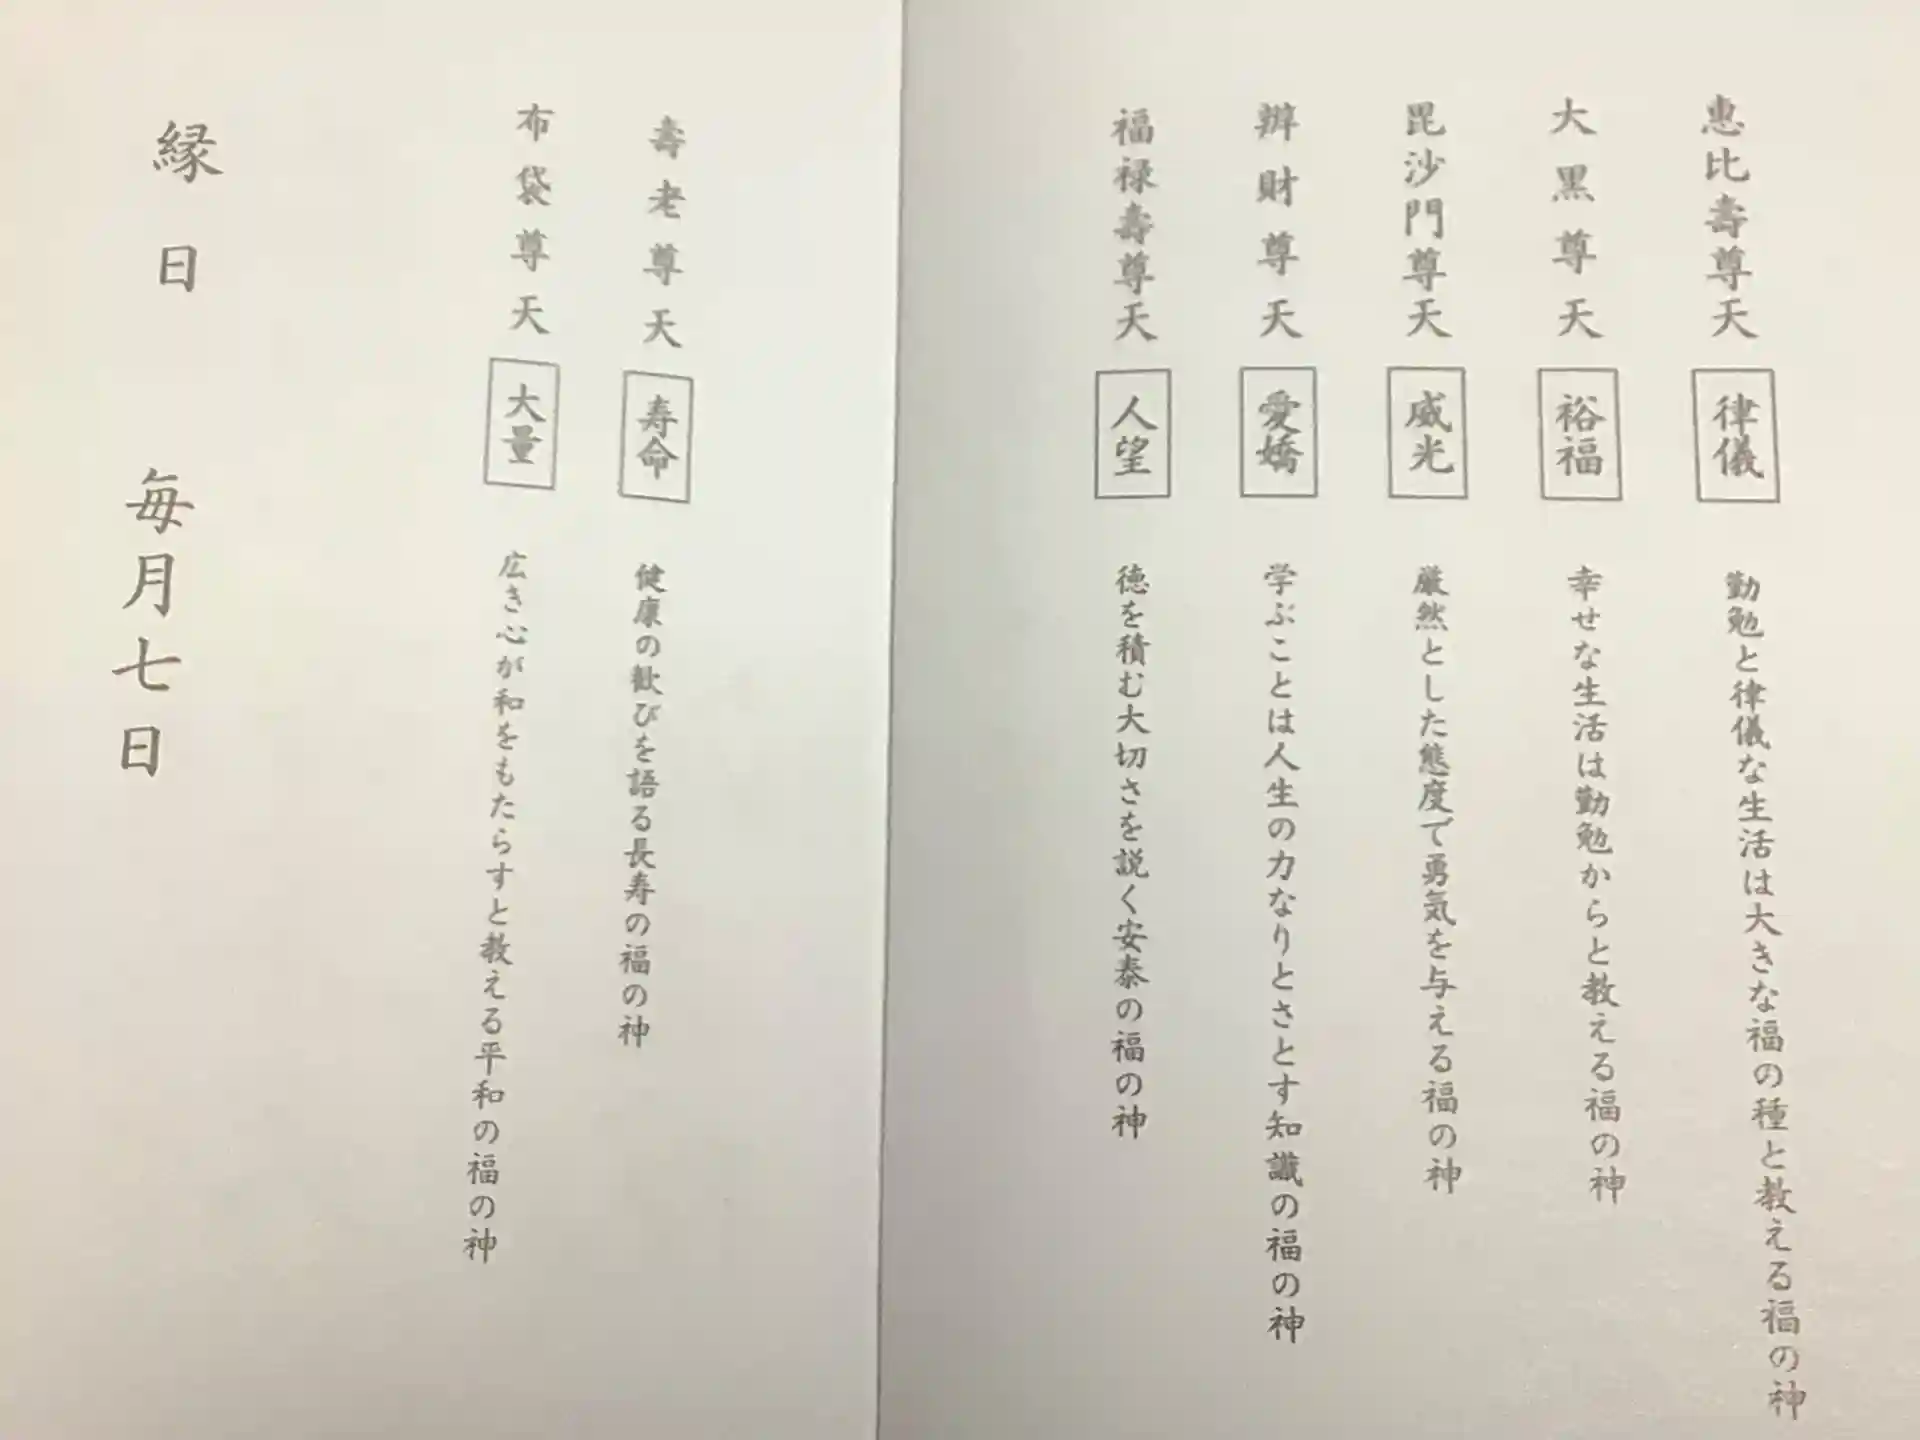 恵比壽尊天 律儀 勤勉と律儀な生活は大きな福の種と教える福の神
大黒尊天 裕福 幸せな生活は勤勉からと教える福の神
毘沙門尊天 威光 厳然とした態度で勇気を与える福の神
辨財尊天 愛嬌 学ぶことは人生の力なりとさとす知識の福の神
福禄壽尊天 人望 徳を積む大切さを説く安泰の福の神
壽老尊天 寿命 健康の歓びを語る長寿の福の神
布袋尊天 大量 広き心が和をもたらすと教える平和の福の神
縁日 毎月七日